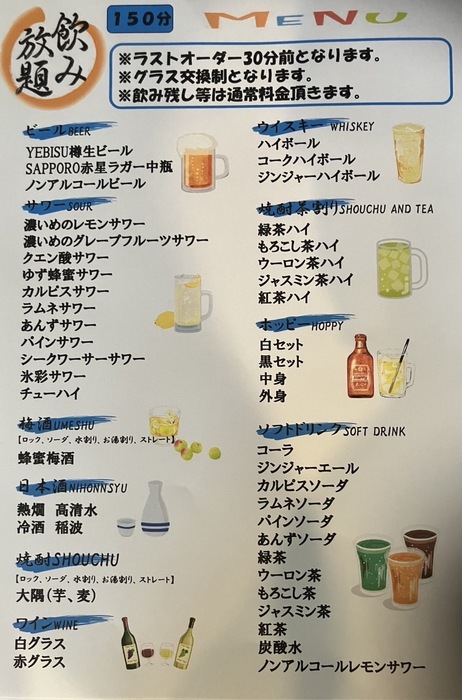 飲み放題
150分
MENU
※ラストオーダー30分前となります。
※グラス交換制となります。
※飲み残し等は通常料金頂きます。
ビールBEER
YEBISU樽生ビール
SAPPORO赤星ラガー中瓶
ノンアルコールビール
サワーSOUR
濃いめのレモンサワー
濃いめのグレープフルーツサワー
クエン酸サワー
ゆず蜂蜜サワー
カルピスサワー
ラムネサワー
あんずサワー
パインサワー
シークワーサーサワー
氷彩サワー
チューハイ
梅酒UMESHU
【ロック、ソーダ、水割り、お湯割り、ストレート】
蜂蜜梅酒
日本酒NIHONNSYU
熱燗 高清水
冷酒 稲波
焼酎SHOUCHU
【ロック、ソーダ、水割り、お湯割り、ストレート】
大隅(芋、麦)
ワインWINE
白グラス
赤グラス
ウイスキー WHISKEY
ハイボール
コークハイボール
ジンジャーハイボール
焼酎茶割りSHOUCHU AND TEA
緑茶ハイ
もろこし茶ハイ
ウーロン茶ハイ
ジャスミン茶ハイ
紅茶ハイ
ホッピーHOPPY
白セット
黒セット
中身
外身
ソフトドリンクSOFT DRINK
コーラ
ジンジャーエール
カルピスソーダ
ラムネソーダ
パインソーダ
あんずソーダ
緑茶
ウーロン茶
もろこし茶
ジャスミン茶
紅茶
炭酸水
ノンアルコールレモンサワー